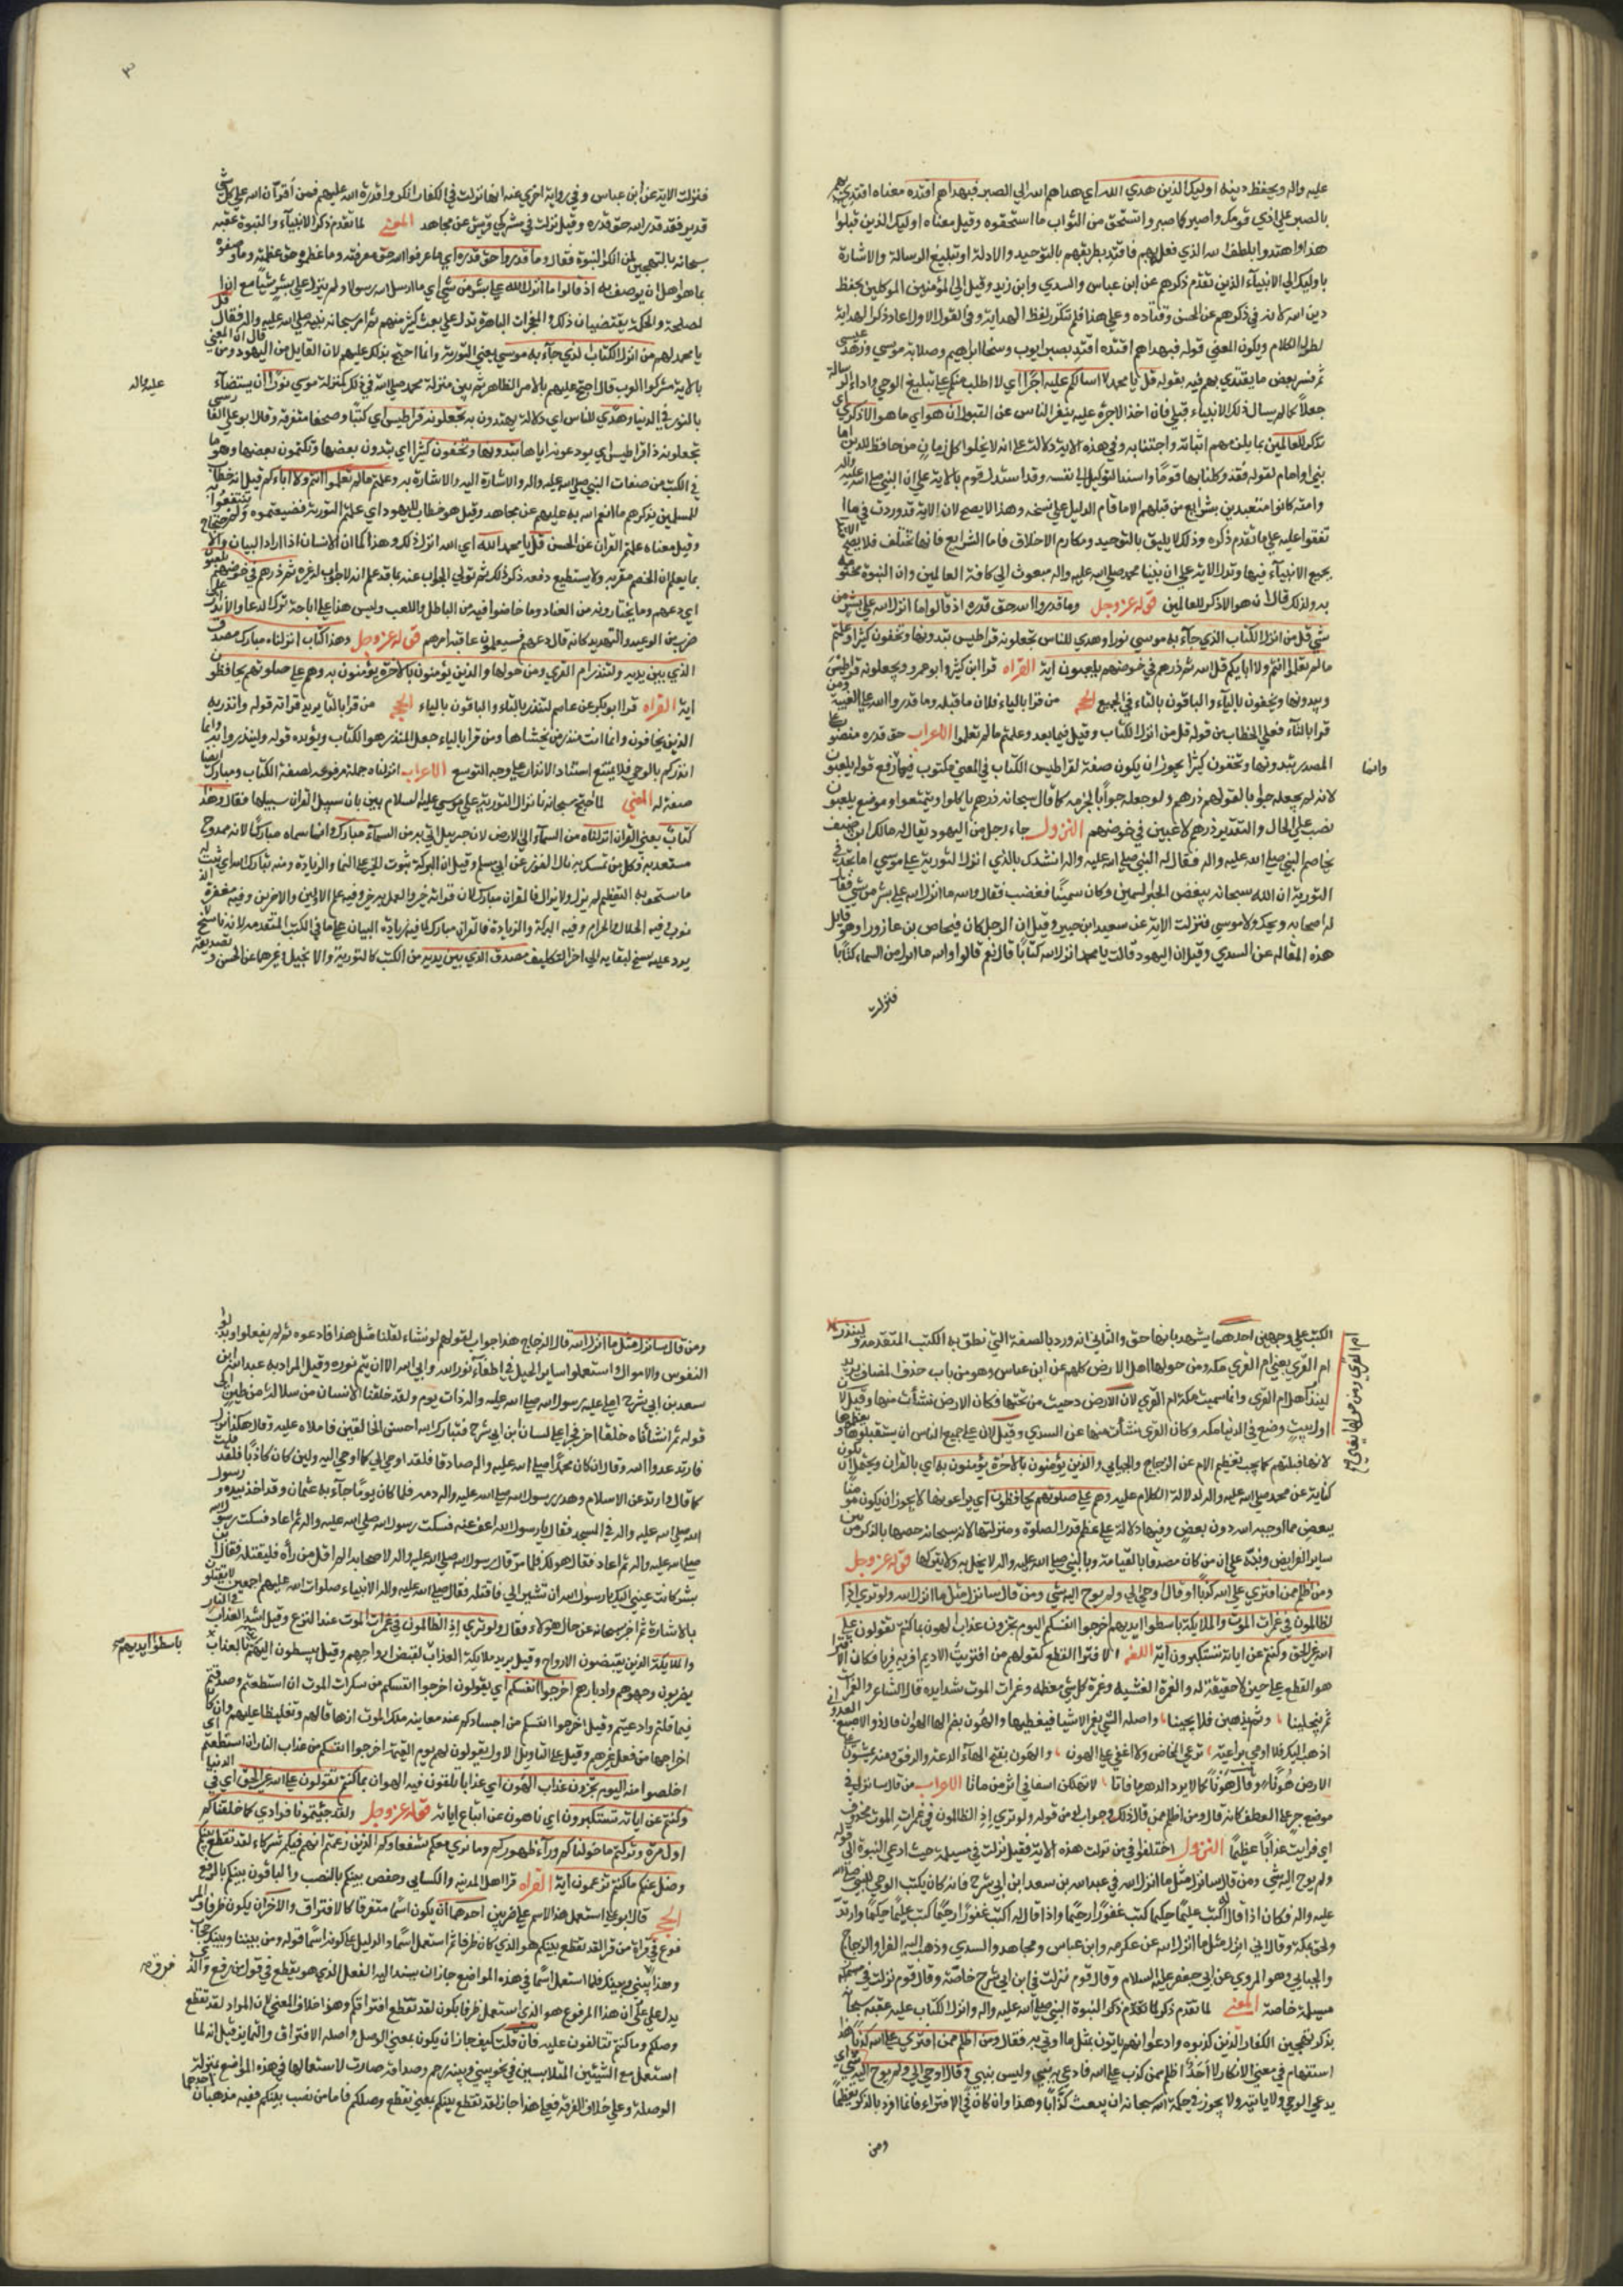 عليه واله ويحفظ دينه اوليك الذين هدي الله اي هداهم الله الي الصبر فبهداهم اقتده معناه اقتد بهم
بالصبر علي اذي قومك واصبر كما صبروا تستحق من الثواب ما استحقوه وقيل معناه اوليك الذين قبلوا
هذا واهتدوا بلطف الله الذي فعل بهم فاقتد بطريقهم بالتوحيد والادلة او تبليغ الرسالة والاشارة
باوليك الي الانبياء الذين تقدم ذكرهم عن ابن عباس والسدي وابن زيد وقيل الي المؤمنين الموكلين بحفظ
دين الله لانه في ذكرهم عن الحسن وقتاده وعلي هذا فلم تتكرر لفظ الهداية وفي القول الاول اعاد ذكر الهداية
لطول الكلام ويكون المعني قوله فبهداهم اقتده اقتد بصبر ايوب وسخا ابراهيم وصلابة موسي وزهد عيسي
ثم فسر بعض ما يقتدي بهم فيه بقوله قل يا محمد لا اسالكم عليه اجرا اي لا اطلب منكم علي تبليغ الوحي واداء الرسالة
جعلا كما لم يسال ذلك الانبياء قبلي فان اخذ الاجرة عليه ينفر الناس عن القبول ان هو اي ما هو الا ذكري
تذكر للعالمين بما يلزمهم اتيانه واجتنابه وفي هذه الاية دلالة علي انه لا يخلو كل زمان من حافظ للدين اما
نبي او امام لقوله فقد وكلنا بها قوما واسند التوكيل الي نفسه وقد استدل قوم بالاية علي ان النبي صلي الله عليه واله
وامته كانوا متعبدين بشرايع من قبلهم الا ما قام الدليل علي نسخه وهذا لا يصح لان الاية قد وردت في ما
تفقوا عليه علي ما تقدم ذكره وذلك لا يليق بالتوحيد ومكارم الاخلاق فاما الشرايع فانها تختلف فلا يصح الاقتدا
بجميع الانبياء فيها وتدل الاية علي ان نبينا محمد صلي الله عليه واله مبعوث الي كافة العالمين وان النبوة مختومة
به ولذلك قال ان هو الا ذكر للعالمين قوله عز وجل وما قدروا الله حق قدره اذ قالوا ما انزل الله علي بشر من
شي قل من انزل الكتاب الذي جاء به موسي نورا وهدي للناس تجعلونه قراطيس تبدونها وتخفون كثيرا وعلمتم
ما لم تعلموا انتم ولا اباؤكم قل الله ثم ذرهم في خوضهم يلعبون اية القراه قرا ابن كثير وابو عمرو يجعلونه قراطيس
ويبدونها ويخفون بالياء والباقون بالتاء في الجميع الحجه من قرا بالياء فلان ما قبله وما قدروا الله علي الغيبة ومن
قرا بالتاء فعلي الخطاب من قوله قل من انزل الكتاب وقيل فيما بعد وعلمتم ما لم تعلموا الاعراب حق قدره منصوب علي
المصدر تبدونها وتخفون كثيرا يجوز ان يكون صفة لقراطيس الكتاب في المعني مكتوب فيها ترفع قوله يلعبون
لانه لم يجعله جوابا لقوله ذرهم ولو جعله جوابا لجزمه كما قال سبحانه ذرهم ياكلوا ويتمتعوا وموضع يلعبون
نصب علي الحال والتقدير ذرهم لاعبين في خوضهم النزول جاء رجل من اليهود يقال له مالك ابن ضيف
يخاصم النبي صلي الله عليه واله فقال له النبي صلي الله عليه واله انشدك بالذي انزل التورية علي موسي اما تجد في
التورية ان الله سبحانه يبغض الحبر السمين وكان سمينا فغضب فقال والله ما انزل الله علي بشر من شي فقال
له اصحابه ويحك ولا موسي فنزلت الاية عن سعيد ابن جبير وقيل ان الرجل كان فنحاص بن عازورا وهو قايل
هذه المقاله عن السدي وقيل ان اليهود قالت يا محمد انزل الله كتابا قال نعم قالوا والله ما انزل من السماء كتابا
فنزلت
وانما
٣
فنزلت الاية عن ابن عباس وفي رواية اخري عنه انها نزلت في الكفار انكروا قدرة الله عليهم فمن اقر ان الله علي كل شي
قدير فقد قدر الله حق قدره وقيل نزلت في مشركي قريش عن مجاهد المعني لما تقدم ذكر الانبياء والنبوة عقبه
سبحانه بالتهجين لمن انكر النبوة فقال وما قدروا حق قدره اي ما عرفوا الله حق معرفته وما عظموه حق عظمته وما وصفوه
بما هو اهل ان يوصف به اذ قالوا ما انزل الله علي بشر من شي اي ما ارسل الله رسولا ولم ينزل علي بشر شيئا مع ان
لمصلحة والحكمة يقتضيان ذلك والمعجزات الباهرة تدل علي بعث كثير منهم ثم امر سبحانه نبيه صلي الله عليه واله فقال قل
يا محمد لهم من انزل الكتاب الذي جاء به موسي يعني التورية وانما احتج بذلك عليهم لان القايل من اليهود ومن قال ان المعني
بالاية مشركوا العرب قال احتج عليهم بالامر الظاهر ثم بين منزلة محمد صلي الله في ذلك كمنزلة موسي نورا ان يستضاء
عليه واله
بالنور في الدنيا وهدي للناس اي دلالة يهتدون به تجعلونه قراطيس اي كتبا وصحفا متفرقة وقال ابو علي الفارسي
تجعلونه ذا قراطيس اي يودعونه اياها تبدونها وتخفون كثيرا اي تبدون بعضها وتكتمون بعضها وهو ما
في الكتب من صفات النبي صلي الله عليه واله والاشارة اليه والاشارة به وعلمتم ما لم تعلموا انتم ولا اباؤكم قيل انه خطاب
للمسلمين يذكرهم ما انعم الله به عليهم عن مجاهد وقيل هو خطاب لليهود اي علمتم التورية فضيعتموه ولم تنتفعوا
وقيل معناه علمتم القران عن الحسن قل يا محمد الله اي الله انزل ذلك وهذا كما ان الانسان اذا اراد البيان والاحتجاج
بما يعلم ان الخصم مقر به ولا يستطيع دفعه ذكر ذلك ثم تولي الجواب عنه بما قد علم انه لا جواب له غيره ثم ذرهم في خوضهم يلعبون
اي دعهم وما يختارونه من العناد وما خاضوا فيه من الباطل واللعب وليس هذا علي اباحة ترك الدعاء والانذار
ضرب من الوعيد والتهديد كانه قال دعهم فسيعلمون عاقبة امرهم قوله عز وجل وهذا كتاب انزلناه مبارك مصدق
الذي بين يديه ولتنذر ام القري ومن حولها والذين يؤمنون بالاخرة يؤمنون به وهم علي صلوتهم يحافظون
اية القراه قرا ابو بكر عن عاصم لينذر بالياء والباقون بالتاء الحجه من قرا بالتاء يريد قراته قوله وانذر به
الذين يخافون وانما انت منذر من يخشاها ومن قرا بالياء جعل المنذر هو الكتاب ويؤيده قوله ولينذروا به وانما
انذركم بالوحي فلا يمتنع اسناد الانذار علي وجه التوسع الاعراب انزلناه جملة مرفوعه لصفة الكتاب ومبارك ايضا
صفة له المعني لما احتج سبحانه بانزال التورية علي موسي عليه السلام بين بان سبيل القران سبيلها فقال وهذا
كتاب يعني القران انزلناه من السماء الي الارض لان جبريل اتي به من السماء مبارك وانما سماه مباركا لانه ممدوح
مستعد به فكل من تمسك به نال الفوز عن ابي مسلم وقيل ان البركة ثبوت الخير علي النما والزيادة ومنه تبارك الله اي ثبت له
ما يستحق به التعظيم لم يزل ولا يزال فالقران مبارك لان قراته خير والعمل به خير وفيه علم الاولين والاخرين وفيه مغفرة
ذنوب وفيه الحلال والحرام وفيه البركة والزيادة فالقران مبارك لما فيه زيادة البيان علي ما في الكتب المتقدمه لانه ناسخ
يرد عليه نسخ لبقايه الي اخر التكليف مصدق الذي بين يديه من الكتب كالتورية والانجيل وغيرها عن الحسن وتصديقه
الكتب علي وجهين احدهما يشهد بانها حق والثاني انه ورد بالصفة التي نطق به الكتب المتقدمة ولينذر
ام القري يعني ام القري مكه ومن حولها اهل الارض كلهم عن ابن عباس وهو من باب حذف المضاف يريد
لينذر اهل ام القري وانما سميت مكة ام القري لان الارض دحيت من تحتها فكان الارض نشأت منها وقيل لان
اول بيت وضع في الدنيا مكه وكان القري نشأت منها عن السدي وقيل لان علي جميع الناس ان يستقبلوها ويعظموها
لانها قبلتهم كما يجب تعظيم الام عن الزجاج والجبايي والذين يؤمنون بالاخرة يؤمنون به اي بالقران ويحتمل ان يكون
كناية عن محمد صلي الله عليه واله لدلالة الكلام عليه وهم علي صلوتهم يحافظون اي يراعونها لا يجوز ان يكون مؤمنا
ببعض مما اوجبه الله دون بعض وفيها دلالة علي عظم قدر الصلوة ومنزلتها لانه سبحانه خصها بالذكر من بين
ساير الفرايض ونبه علي ان من كان مصدقا بالقيامة وبالنبي صلي الله عليه واله لا يخل به ولا يتركها قوله عز وجل
ومن اظلم ممن افتري علي الله كذبا او قال اوحي الي ولم يوح اليه شي ومن قال سانزل مثل ما انزل الله ولو تري اذ
لظالمون في غمرات الموت والملايكة باسطوا ايديهم اخرجوا انفسكم اليوم تجزون عذاب الهون بما كنتم تقولون علي
الله غير الحق وكنتم عن اياته تستكبرون اية اللغه الافترا القطع لقولهم من افتريت الاديم افريه فريا فكان الافترا
هو القطع علي خبر لا حقيقة له والغمرة الغشية وغمرة كل شي معظمه وغمرات الموت شدايده قال الشاعر والغمرات
ثم ينجلينا وثم يذهبن فلا يجينا واصله الشي يغمر الاشيا فيغطيها والهون بضم الها الهوان قال ذو الاصبع العدواني
اذهب اليك فلا امي براعية ترعي المخاض ولا اغضي علي الهون والهون بفتح الهاء الدعة والرفق ومنه يمشون علي
الارض هونا وقال هونا كما لا يرد الدهر ما فاتا لا تهلكن اسفا في اثر من ماتا الاعراب من قال سانزل في
موضع جر علي العطف كانه قال ومن اظلم ممن قال ذلك وجواب لو من قوله ولو تري اذ الظالمون في غمرات الموت محذوف
اي لرايت عذابا عظيما النزول اختلفوا فيمن نزلت هذه الاية فقيل نزلت في مسيلمة حيث ادعي النبوة الي قوله
ولم يوح اليه شي ومن قال سانزل مثل ما انزل الله في عبد الله بن سعد ابن ابي سرح فانه كان يكتب الوحي للنبي صلي الله
عليه واله فكان اذا قال له اكتب عليما حكيما كتب غفورا رحيما واذا قال له اكتب غفورا رحيما كتب عليما حكيما وارتد
ولحق بمكة وقال اني انزل مثل ما انزل الله عن عكرمه وابن عباس ومجاهد والسدي وذهب اليه الفرا والزجاج
والجبايي وهو المروي عن ابي جعفر عليه السلام وقال قوم نزلت في ابن ابي سرح خاصة وقال قوم نزلت في
مسيلمة خاصة المعني لما تقدم ذكر نبوة النبي صلي الله عليه واله وانزل الكتاب عليه عقبه سبحانه
بذكر تهجين الكفار الذين كذبوه وادعوا انهم ياتون بمثل ما اوتي به فقال ومن اظلم ممن افتري علي الله كذبا هذا
استفهام في معني الانكار لا احد اظلم ممن كذب علي الله فادعي انه نبي وليس بنبي وقال اوحي الي ولم يوح اليه شي اي
يدعي الوحي ولا ياتيه ولا يجوز في حكمة الله سبحانه ان يبعث كذابا وهذا وان كان في الافتراء فانما افرد بالذكر تعظيما
ومن
ومن قال سانزل مثل ما انزل الله قال الزجاج هذا جواب لقولهم لو نشاء لقلنا مثل هذا فادعوه ثم لم يفعلوا وبذلوا
النفوس والاموال واستعملوا ساير الحيل في اطفاء نور الله وابي الله الا ان يتم نوره وقيل المراد به عبد الله ابن
سعد بن ابي سرح املي عليه رسول الله صلي الله عليه واله ذات يوم ولقد خلقنا الانسان من سلالة من طين الي
قوله ثم انشاناه خلقا اخر فجري علي لسان ابن ابي سرح فتبارك الله احسن الخالقين فاملاه عليه وقال هكذا انزل
فارتد عدو الله وقال ان كان محمدا صلي الله عليه واله صادقا فلقد اوحي الي كما اوحي اليه ولين كان كاذبا فلقد قلت
كما قال وارتد عن الاسلام وهدر رسول الله صلي الله عليه واله دمه فلما كان يوما جاء به عثمان وقد اخذ بيده ورسول
الله صلي الله عليه واله في المسجد فقال يا رسول الله اعف عنه فسكت رسول الله صلي الله عليه واله ثم اعاد فسكت رسول الله
صلي الله عليه واله ثم اعاد فقال هو لك فلما مر قال رسول الله صلي الله عليه واله لاصحابه الم اقل من رآه فليقتله فقال ابن
بشر كانت عيني اليك يا رسول الله ان تشير الي فاقتله فقال صلي الله عليه واله الانبياء صلوات الله عليهم اجمعين لا يقتلون
بالاشارة ثم اخبر سبحانه عن حال هؤلاء فقال ولو تري اذ الظالمون في غمرات الموت عند النزع وقيل اشد العذاب في النار
والملايكة الذين يقبضون الارواح وقيل يريد ملايكة العذاب لقبض ارواحهم وقيل يبسطون اليهم بالعذاب
باسطوا ايديهم
يضربون وجوههم وادبارهم اخرجوا انفسكم اي يقولون اخرجوا انفسكم من سكرات الموت ان استطعتم وصدقتم
فيما قلتم وادعيتم وقيل اخرجوا انفسكم من اجسادكم عند معاينة ملك الموت ازهاقا لهم وتغليظا عليهم وان كان
اخراجها من فعل غيرهم وقيل علي التاويل الاول يقولون لهم يوم القيمة اخرجوا انفسكم من عذاب النار ان استطعتم اي
اخلصوا منه اليوم تجزون عذاب الهون اي عذابا تلقون فيه الهوان بما كنتم تقولون علي الله غير الحق اي في الدنيا
وكنتم عن اياته تستكبرون اي تاهون عن اتباع اياته قوله عز وجل ولقد جئتمونا فرادي كما خلقناكم
اول مرة وتركتم ما خولناكم ورآء ظهوركم وما نري معكم شفعاؤكم الذين زعمتم انهم فيكم شركاء لقد تقطع بينكم
وضل عنكم ما كنتم تزعمون اية القراه قرا اهل المدينة والكسايي وحفص بينكم بالنصب والباقون بينكم بالرفع
الحجه قال ابو علي استعمل هذا الاسم علي ضربين احدهما ان يكون اسما متفرقا كالافتراق والاخر ان يكون ظرفا والمر
فوع في قراة من قرا لقد تقطع بينكم هو الذي كان ظرفا ثم استعمل اسما والدليل علي كونه اسما قوله ومن بيننا وبينك حجاب
وهذا بيني وبينك فلما استعمل اسما في هذه المواضع جاز ان يسند اليه الفعل الذي هو تقطع في قول من رفع والذي
يدل علي ان هذا المرفوع هو الذي استعمل ظرفا يكون لقد تقطع افتراقكم وهو خلاف المعني لان المراد لقد تقطع
وصلكم وما كنتم تتالفون عليه فان قلت كيف جاز ان يكون بمعني الوصل واصله الافتراق والتباين قيل انه لما
استعمل مع الشيئين المتلابسين في نحو بيني وبينه رحم وصداقة صارت لاستعمالها في هذه المواضع بمنزلة
الوصلة وعلي خلاف الفرقة فلهذا جاز لقد تقطع بينكم بمعني تقطع وصلكم فاما من نصب بينكم ففيه مذهبان احدهما